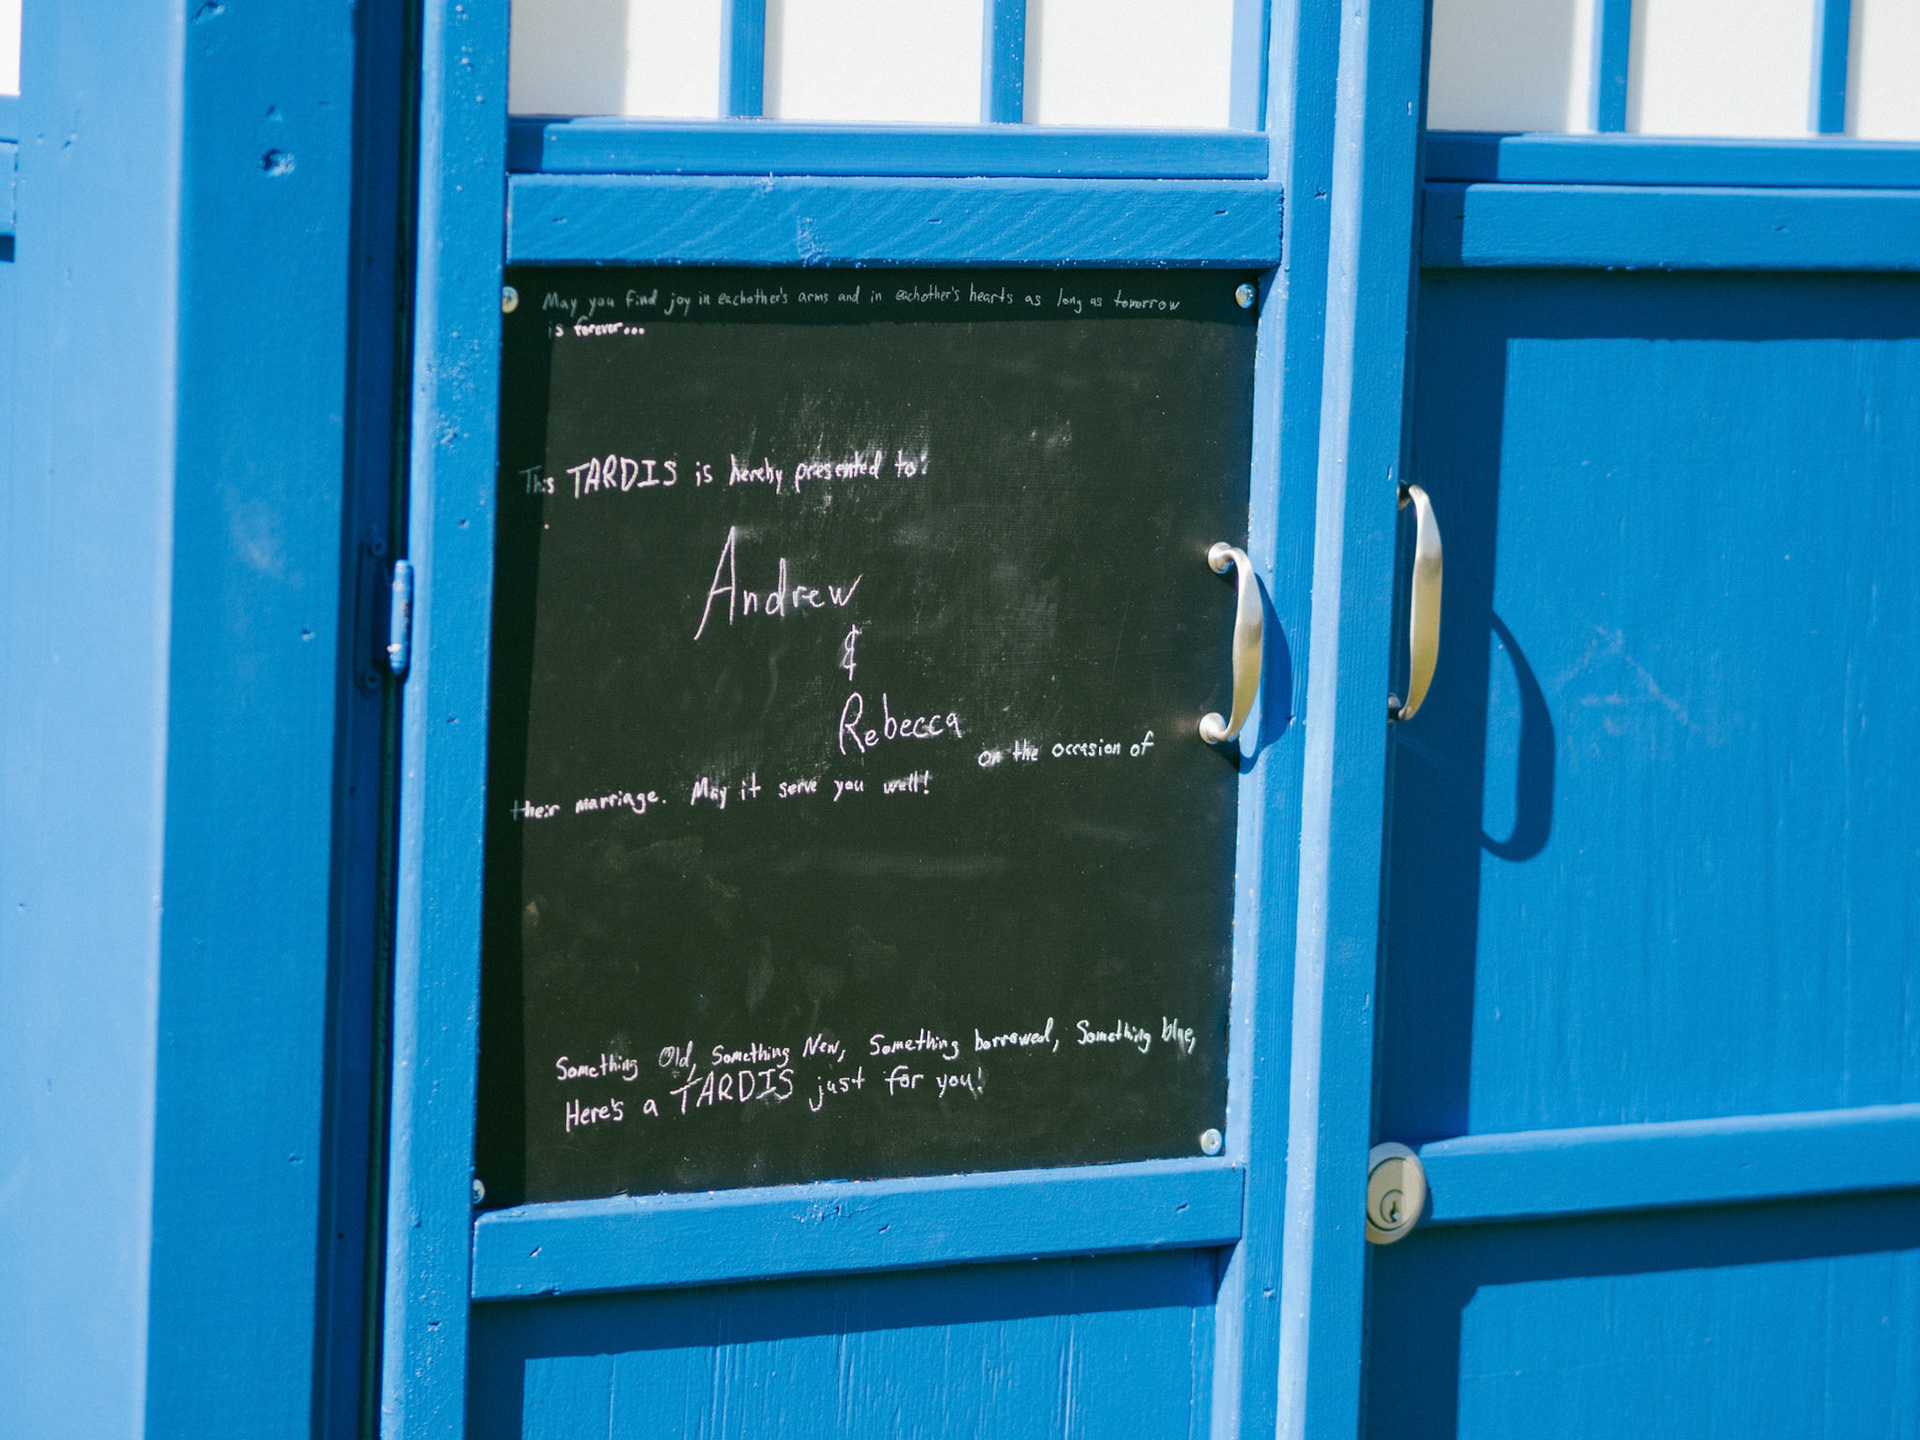 May you find joy in eachother's arms and in eachother's hearts as long as tomorrow
is forever...
This TARDIS is hereby presented to:
Andrew
&
Rebecca
on the occasion of
their marriage. May it serve you well!
Something Old, Something New, Something borrowed, Something blue,
Here's a TARDIS just for you!